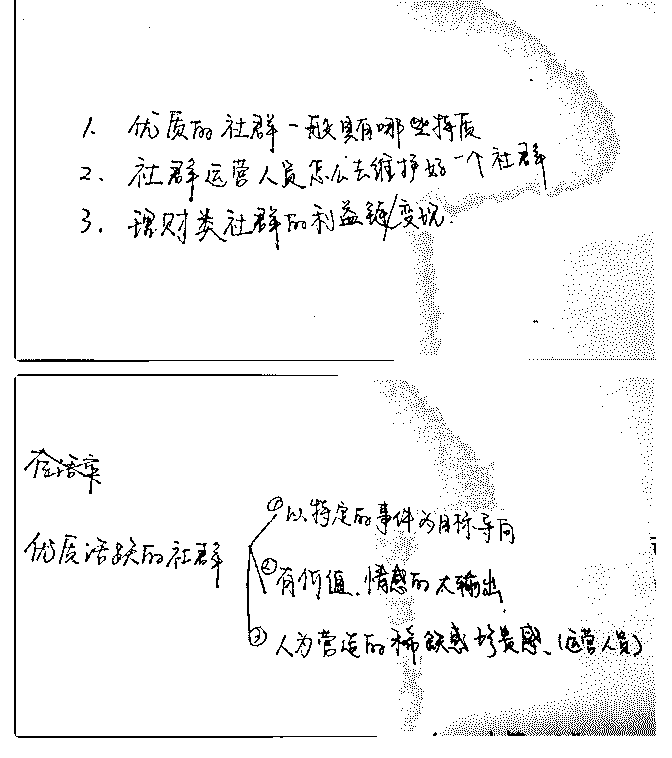 1. 优质的社群一般具有哪些特质
2. 社群运营人员怎么去维护好一个社群
3. 理财类社群的利益链/变现.
优质活跃的社群
①以特定的事件为目标导向
②有价值、情感的大输出
③人为营造的稀缺感珍贵感、(运营人员)